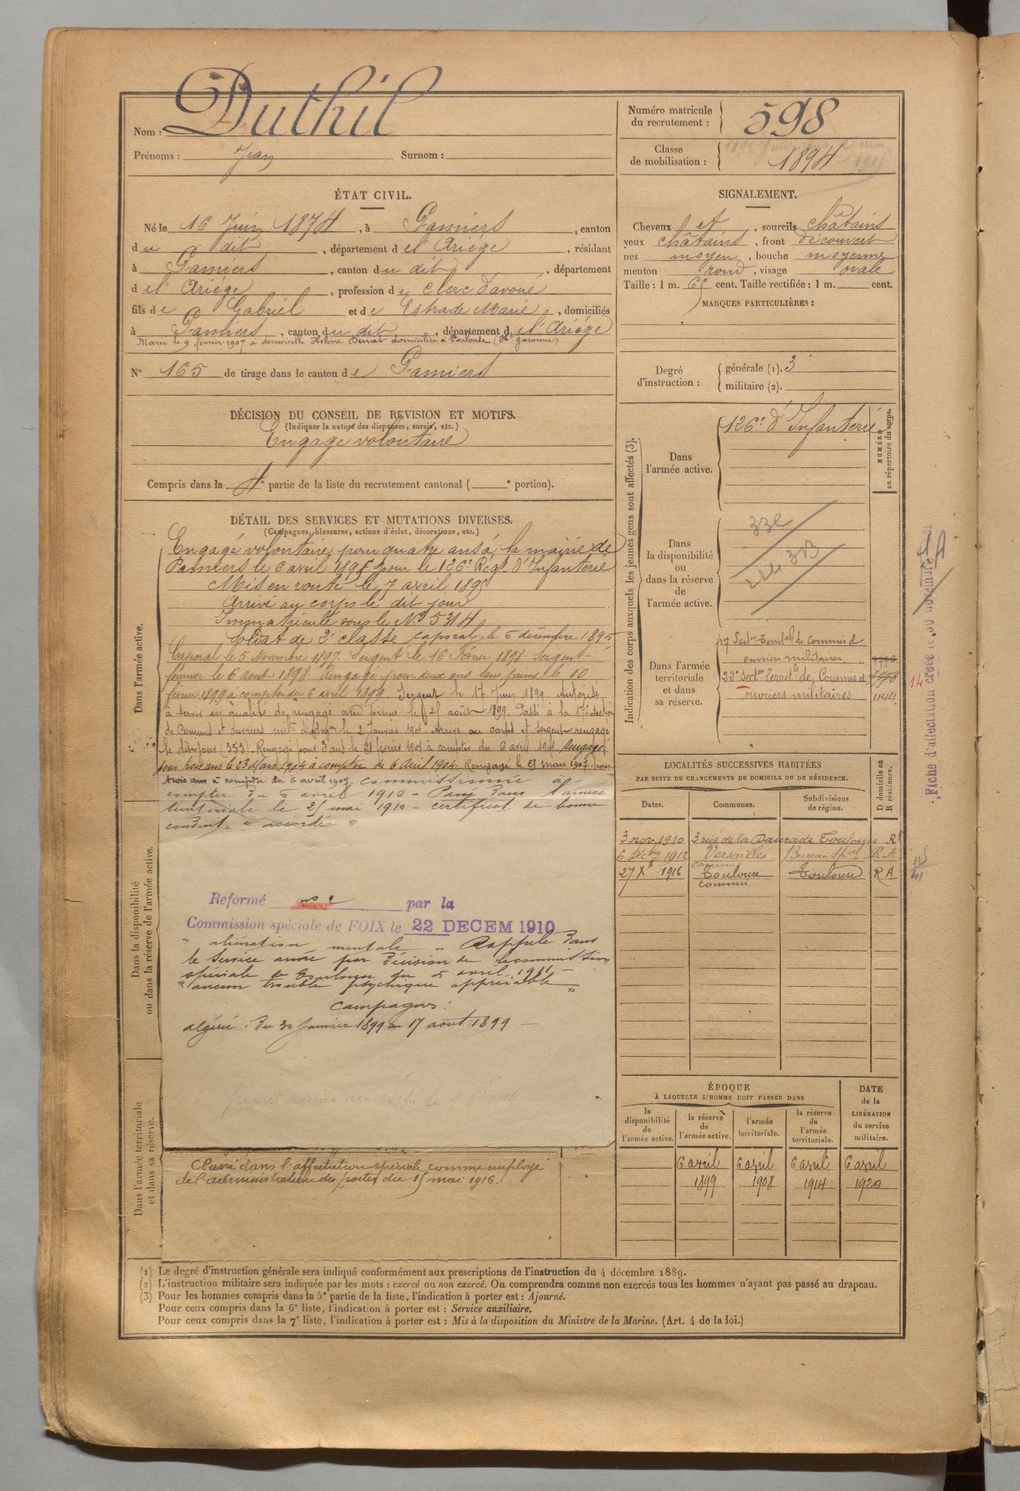 Nom : Duthil
Prénoms : Jean Surnom :
Numéro matricule du recrutement : 598
Classe de mobilisation : 1894
ÉTAT CIVIL.
Né le 16 Juin 1874, à Pamiers, canton
du dit, département de l'Ariège, résidant
à Pamiers, canton du dit, département
de l'Ariège, profession de clerc d'avoué
fils de Gabriel et de Estrade Marie, domiciliés
à Pamiers, canton du dit, département de l'Ariège
Marié le 9 février 1907 à demoiselle Hélène domiciliée à Toulouse (Hte Garonne)
N° 165 de tirage dans le canton de Pamiers
SIGNALEMENT.
Cheveux et, sourcils châtains
yeux châtains, front découvert
nez moyen, bouche moyenne
menton rond, visage ovale
Taille : 1 m. 69 cent. Taille rectifiée : 1 m. cent.
MARQUES PARTICULIÈRES :
Degré d'instruction : générale (1). 3
militaire (2).
DÉCISION DU CONSEIL DE REVISION ET MOTIFS.
(Indiquer la nature des dispenses, sursis, etc.)
Engagé volontaire
Compris dans la 4e partie de la liste du recrutement cantonal ( e portion).
DÉTAIL DES SERVICES ET MUTATIONS DIVERSES.
(Campagnes, blessures, actions d'éclat, décorations, etc.)
Dans l'armée active.
Engagé volontaire pour quatre ans à la mairie de
Pamiers le 6 avril 1895 pour le 126e Régt d'Infanterie
Mis en route le 7 avril 1895
Arrivé au corps le dit jour
Immatriculé sous le No 5314
Soldat de 2e classe caporal le 5 décembre 1895
Caporal le 5 Novembre 1897. Sergent le 16 Février 1898 Sergent-
fourrier le 6 août 1898 Rengagé pour deux ans le 10
février 1899 à compter du 6 avril 1899. Sergent le 17 Juin 1899. Autorisé
à servir en qualité de rengagé avec prime le 25 août 1899. Passé à la 17e section
de Commis et ouvriers le 2 Janvier 1901. Arrivé au corps et sergent rengagé
le dit jour (353). Rengagé pour 3 ans le 21 février 1901 à compter du 6 avril 1901. Rengagé
pour trois ans le 23 Mars 1904 à compter du 6 Avril 1904. Rengagé le 29 mars 1907 pour
trois ans à compter du 6 avril 1907. Commissionné à
compter du 6 avril 1910 - Passé dans l'armée
territoriale le 25 mai 1910 - certificat de bonne
conduite "accordé"
Dans la disponibilité ou dans la réserve de l'armée active.
Reformé no 2 par la
Commission spéciale de FOIX le 22 DECEM 1910
"aliénation mentale" Rappelé dans
le service armé par décision de la commission
spéciale de Toulouse du 5 avril 1911 -
"aucun trouble psychique appréciable"
Campagnes :
Algérie : Du 30 Janvier 1899 au 17 août 1899 -
Dans l'armée territoriale et dans sa réserve.
Classé dans l'affectation spéciale comme employé
de l'administration des postes du 15 mai 1916.
Indication des corps auxquels les jeunes gens sont affectés (3).
NUMÉRO au répertoire du corps.
Dans l'armée active.
126e d'Infanterie
Dans la disponibilité ou dans la réserve de l'armée active.
Dans l'armée territoriale et dans sa réserve.
17 Sectn Territale de Commis et
ouvriers militaires
22e Sectn Territle de Commis et
ouvriers militaires
LOCALITÉS SUCCESSIVES HABITÉES
PAR SUITE DE CHANGEMENTS DE DOMICILE OU DE RÉSIDENCE.
Dates. Communes. Subdivisions de région. D domicile ou R résidence.
3 nov. 1910 3 rue de la Daurade Toulouse R
6 1912 Versailles Bureau RA
27 Xe 1916 Toulouse Toulouse RA
ÉPOQUE
À LAQUELLE L'HOMME DOIT PASSER DANS
la disponibilité de l'armée active.
la réserve de l'armée active.
l'armée territoriale.
la réserve de l'armée territoriale.
DATE de la LIBÉRATION du service militaire.
6 avril 1899
6 avril 1908
6 avril 1914
6 avril 1920
(1) Le degré d'instruction générale sera indiqué conformément aux prescriptions de l'instruction du 4 décembre 1889.
(2) L'instruction militaire sera indiquée par les mots : exercé ou non exercé. On comprendra comme non exercés tous les hommes n'ayant pas passé au drapeau.
(3) Pour les hommes compris dans la 5e partie de la liste, l'indication à porter est : Ajourné.
Pour ceux compris dans la 6e liste, l'indication à porter est : Service auxiliaire.
Pour ceux compris dans la 7e liste, l'indication à porter est : Mis à la disposition du Ministre de la Marine. (Art. 4 de la loi.)